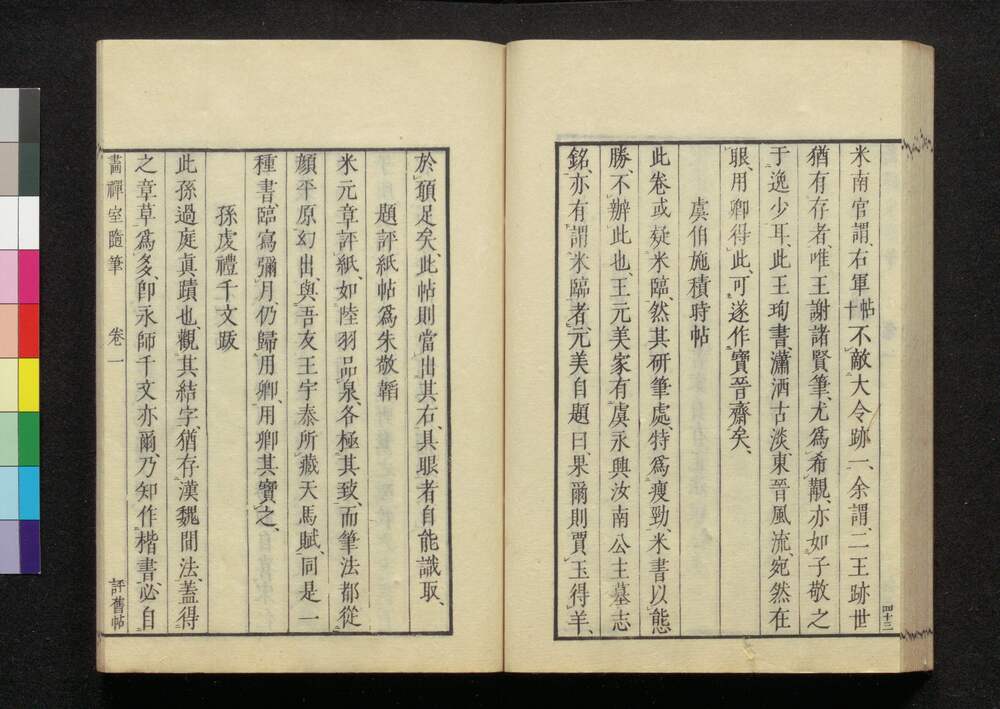 米南官謂、右軍帖十不敵大令跡一、余謂、二王跡世
猶有存者、唯王謝諸賢筆、尤爲希覯、亦如子敬之
于逸少耳、此王珣書、瀟洒古淡、東晉風流、宛然在
眼、用卿得此、可遂作寶晉齋矣、
虞伯施積時帖
此卷或疑米臨、然其研筆處、特爲瘦勁、米書以態
勝、不辦此也、王元美家有虞永興汝南公主墓志
銘、亦有謂米臨者、元美自題曰、果爾則買玉得羊、
四十三
於願足矣、此帖則當出其右、具眼者自能識取、
題評紙帖爲朱敬韜
米元章評紙、如陸羽品泉、各極其致、而筆法都從
顏平原幻出、與吾友王宇泰所藏天馬賦、同是一
種書、臨寫彌月、仍歸用卿、用卿其寶之、
孫虔禮千文跋
此孫過庭眞蹟也、觀其結字、猶存漢魏間法、蓋得
之章草爲多、卽永師千文亦爾、乃知作楷書、必自
畫禪室隨筆 卷一 評舊帖